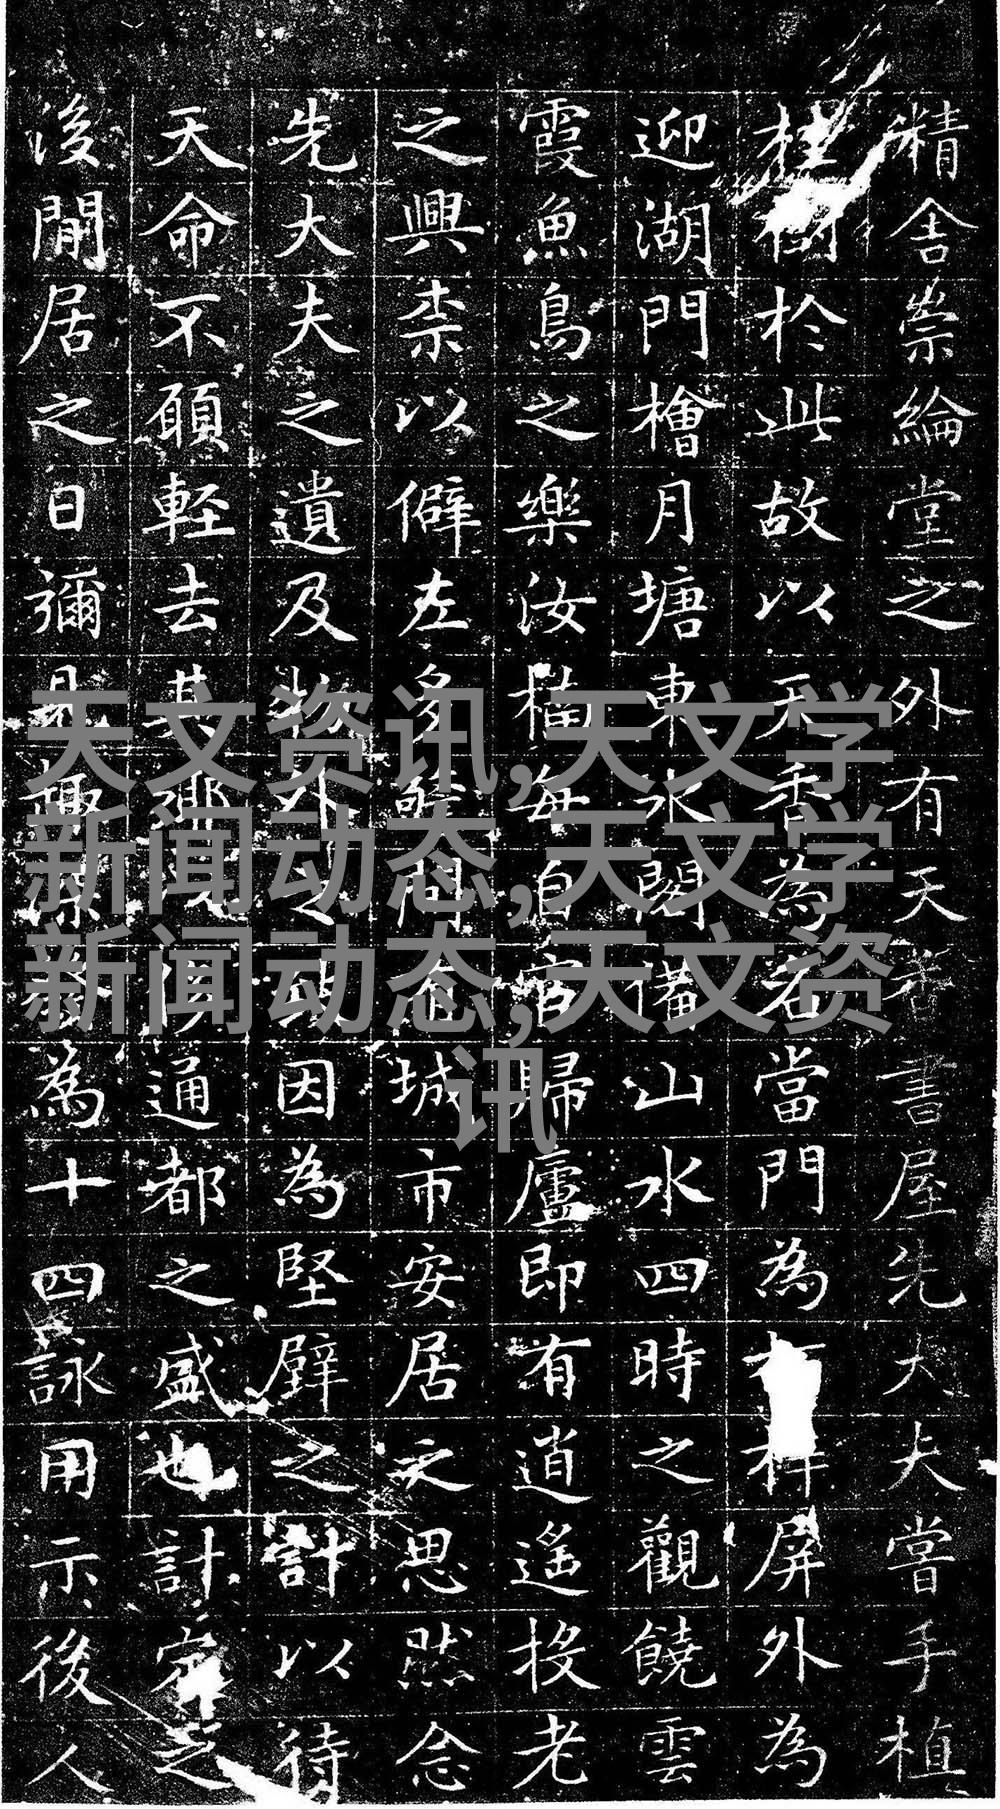 精舍崇綸堂之外有天香書屋先大夫嘗手植
桂樹於此故以天香為名當門為屏外為
迎湖門檜月塘東水閣備山水四時之觀饒雲
霞魚鳥之樂汝楠每自官歸廬即有逍遙投老
之興柰以僻左多城市安居之思然念
先大夫之遺及物外之因為堅壁之計以待
天命不願輕去其通都之盛也計定之
後閒居之日彌見趣深為十四詠用示後人
天文资讯,天文学
新闻动态,天文学
新闻动态,天文资
讯